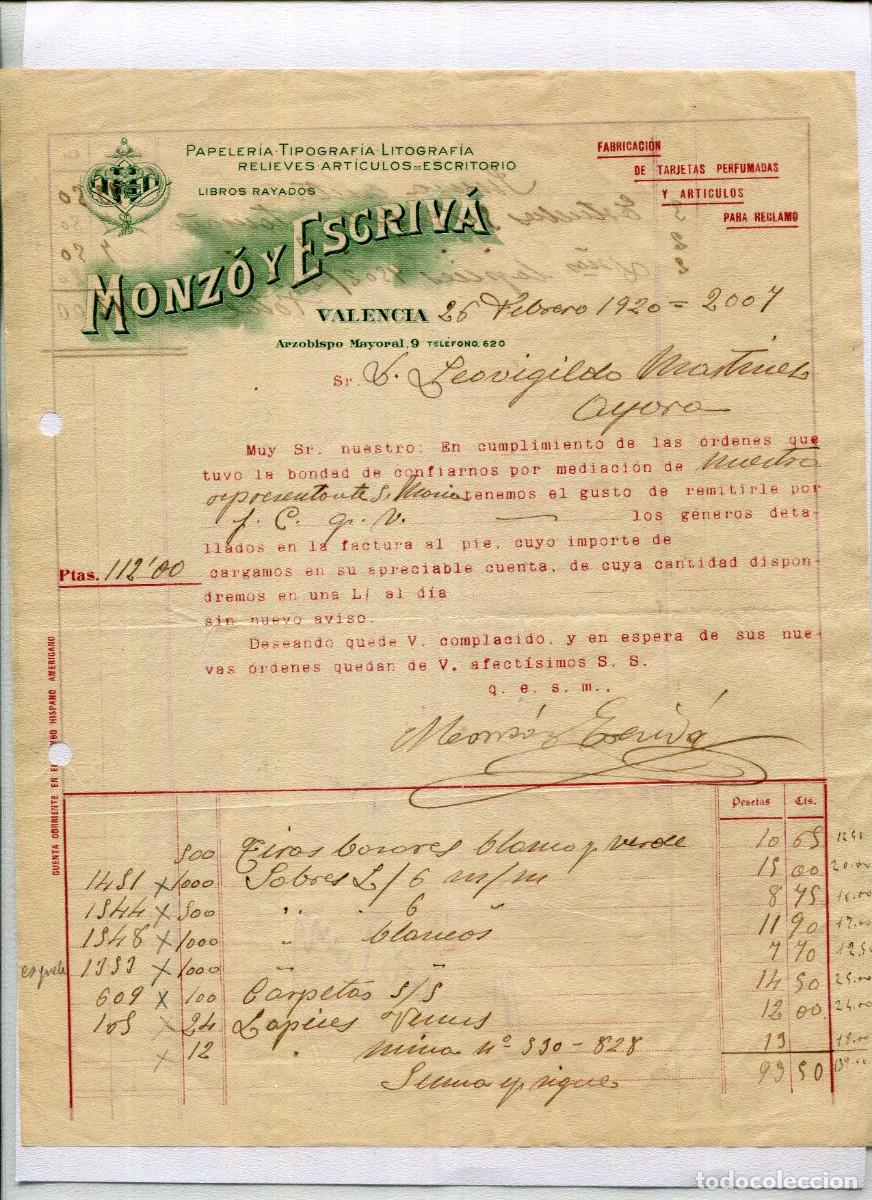 PAPELERÍA·TIPOGRAFÍA·LITOGRAFÍA
RELIEVES·ARTÍCULOS DE ESCRITORIO
LIBROS RAYADOS
MONZÓ Y ESCRIVÁ
FABRICACION
DE TARJETAS PERFUMADAS
Y ARTICULOS
PARA RECLAMO
VALENCIA 26 Febrero 1920 = 2007
Arzobispo Mayoral, 9 TELÉFONO, 620
Sr. D. Leovigildo Martinez
Ayora
Muy Sr. nuestro: En cumplimiento de las órdenes que
tuvo la bondad de confiarnos por mediación de nuestro
representante S. Maria tenemos el gusto de remitirle por
f. C. g. v. los géneros deta-
llados en la factura al pie, cuyo importe de
Ptas. 112'00 cargamos en su apreciable cuenta, de cuya cantidad dispon-
dremos en una L/ al día
sin nuevo aviso.
Deseando quede V. complacido, y en espera de sus nue-
vas órdenes quedan de V. afectísimos S. S.
q. e. s. m.,
Monzó y Escrivá
CUENTA CORRIENTE EN EL HISPANO AMERICANO
Pesetas Cts.
500 Tiras blanco y verde 10 65
1451 x 1000 Sobres L/6 m/m 15 00 20.00
1544 x 500 " 6 " 8 75
1548 x 1000 " blancos 11 90
1353 x 1000 " " 7 70
609 x 100 Carpetas s/s 14 50 25.00
105 x 24 Lapices Venus 12 00 24.00
x 12 " mina nº 530-828 13
Suma y sigue 93 50
todocoleccion